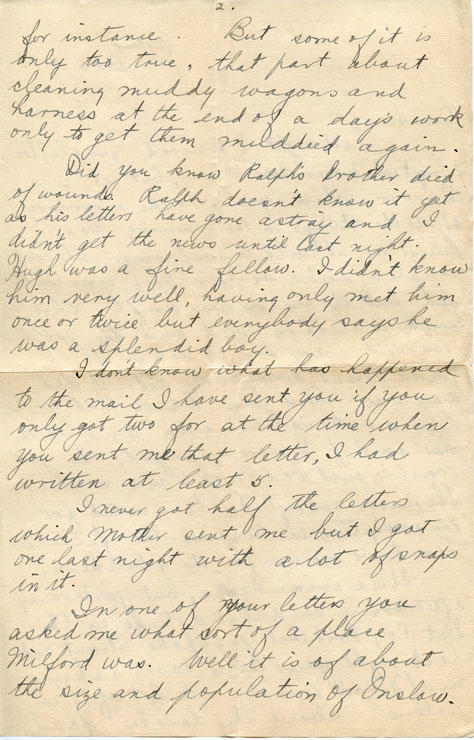 2.
for instance. But some of it is
only too true, that part about
cleaning muddy wagons and
harness at the end of a day's work
only to get them muddied again.
Did you know Ralph's brother died
of wounds. Ralph doesn't know it yet
as his letters have gone astray and I
didn't get the news until last night.
Hugh was a fine fellow. I didn't know
him very well, having only met him
once or twice but everybody says he
was a splendid boy.
I don't know what has happened
to the mail I have sent you if you
only got two for at the time when
you sent me that letter, I had
written at least 5.
I never got half the letters
which Mother sent me but I got
one last night with a lot of snaps
in it.
In one of your letters you
asked me what sort of a place
Milford was. Well it is of about
the size and population of Onslow.